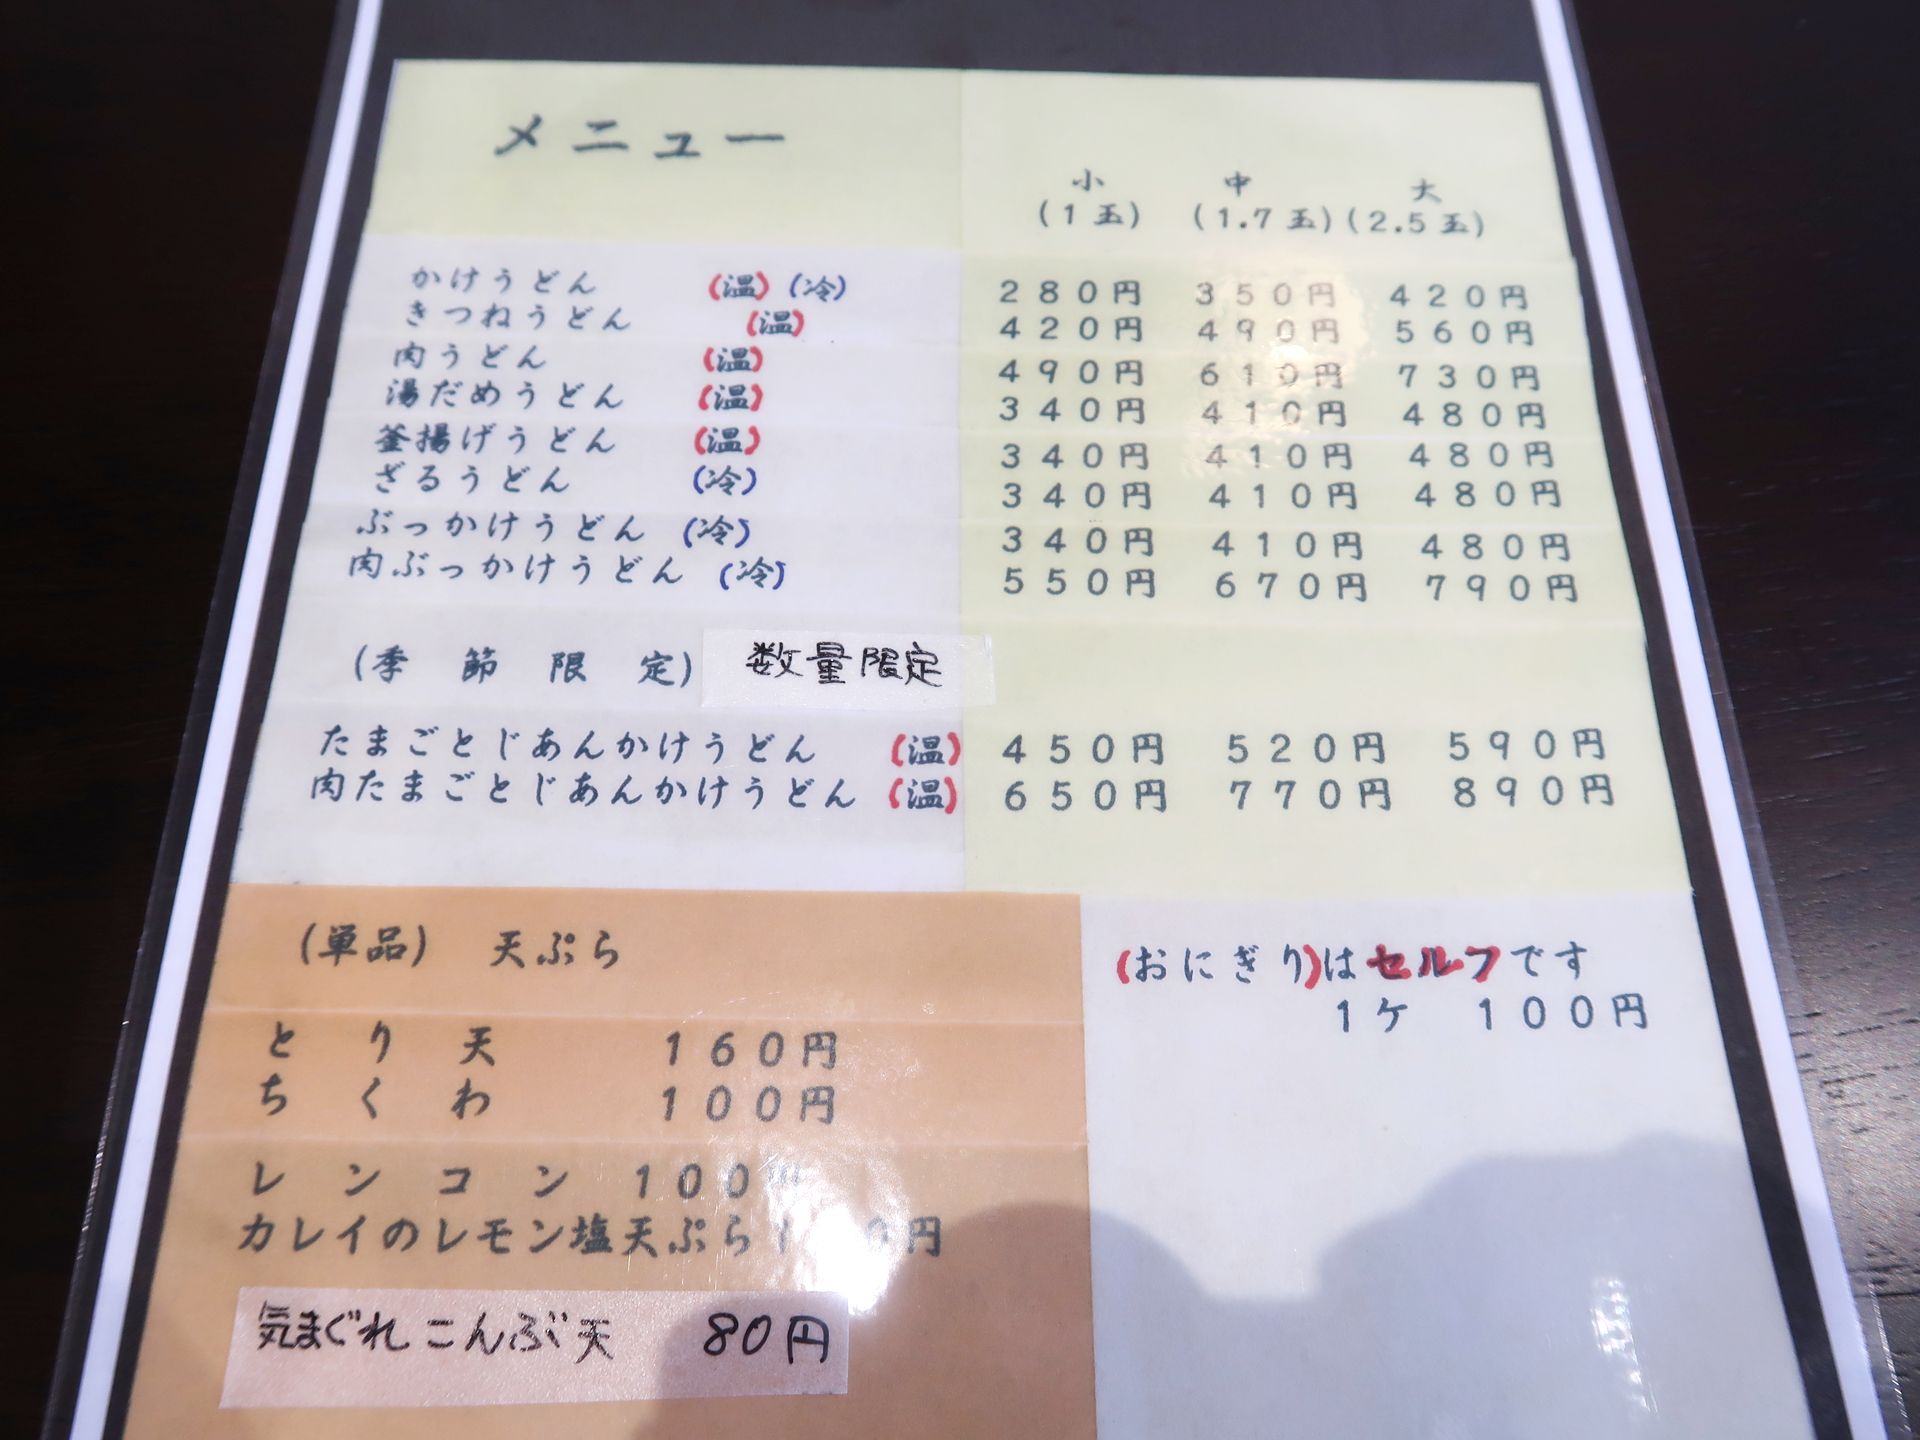 メニュー
小 中 大
(1玉) (1.7玉) (2.5玉)
かけうどん (温) (冷) 280円 350円 420円
きつねうどん (温) 420円 490円 560円
肉うどん (温) 490円 610円 730円
湯だめうどん (温) 340円 410円 480円
釜揚げうどん (温) 340円 410円 480円
ざるうどん (冷) 340円 410円 480円
ぶっかけうどん (冷) 340円 410円 480円
肉ぶっかけうどん (冷) 550円 670円 790円
(季節限定) 数量限定
たまごとじあんかけうどん (温) 450円 520円 590円
肉たまごとじあんかけうどん (温) 650円 770円 890円
(単品) 天ぷら
とり天 160円
ちくわ 100円
レンコン 100円
カレイのレモン塩天ぷら
気まぐれこんぶ天 80円
(おにぎり)はセルフです
1ケ 100円